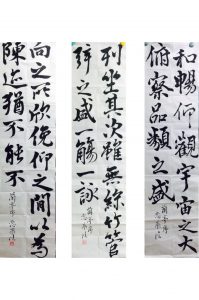 和暢仰觀宇宙之大
俯察品類之盛
列坐其次雖無絲竹管
弦之盛一觴一詠
蘭亭序
向之所欣俛仰之間以為
陳迹猶不能不
蘭亭序